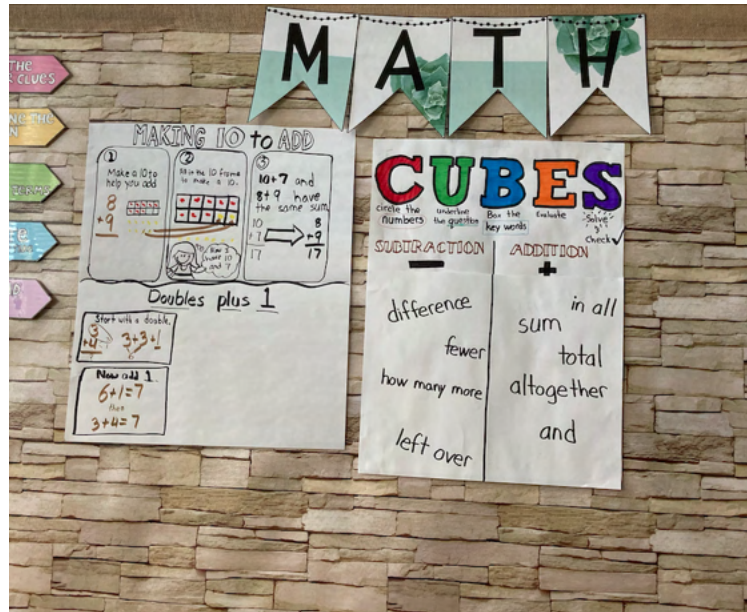 MATH
THE
CLUES
THE
N
MAKING 10 to ADD
1
Make a 10 to
help you add
8
+9
2
Fill in the 10 frame
to make a 10.
Now I
have 10
and 7
3
10+7 and
8+9 have
the same sum
10
+7
17
8
+9
17
Doubles plus 1
Start with a double.
3
+4
3+3+1
6
Now add 1
6+1=7
then
3+4=7
CUBES
circle the
numbers
underline
the question
Box the
key words
Evaluate
Solve
&
check ✓
SUBTRACTION
−
difference
fewer
how many more
left over
ADDITION
+
in all
sum
total
altogether
and